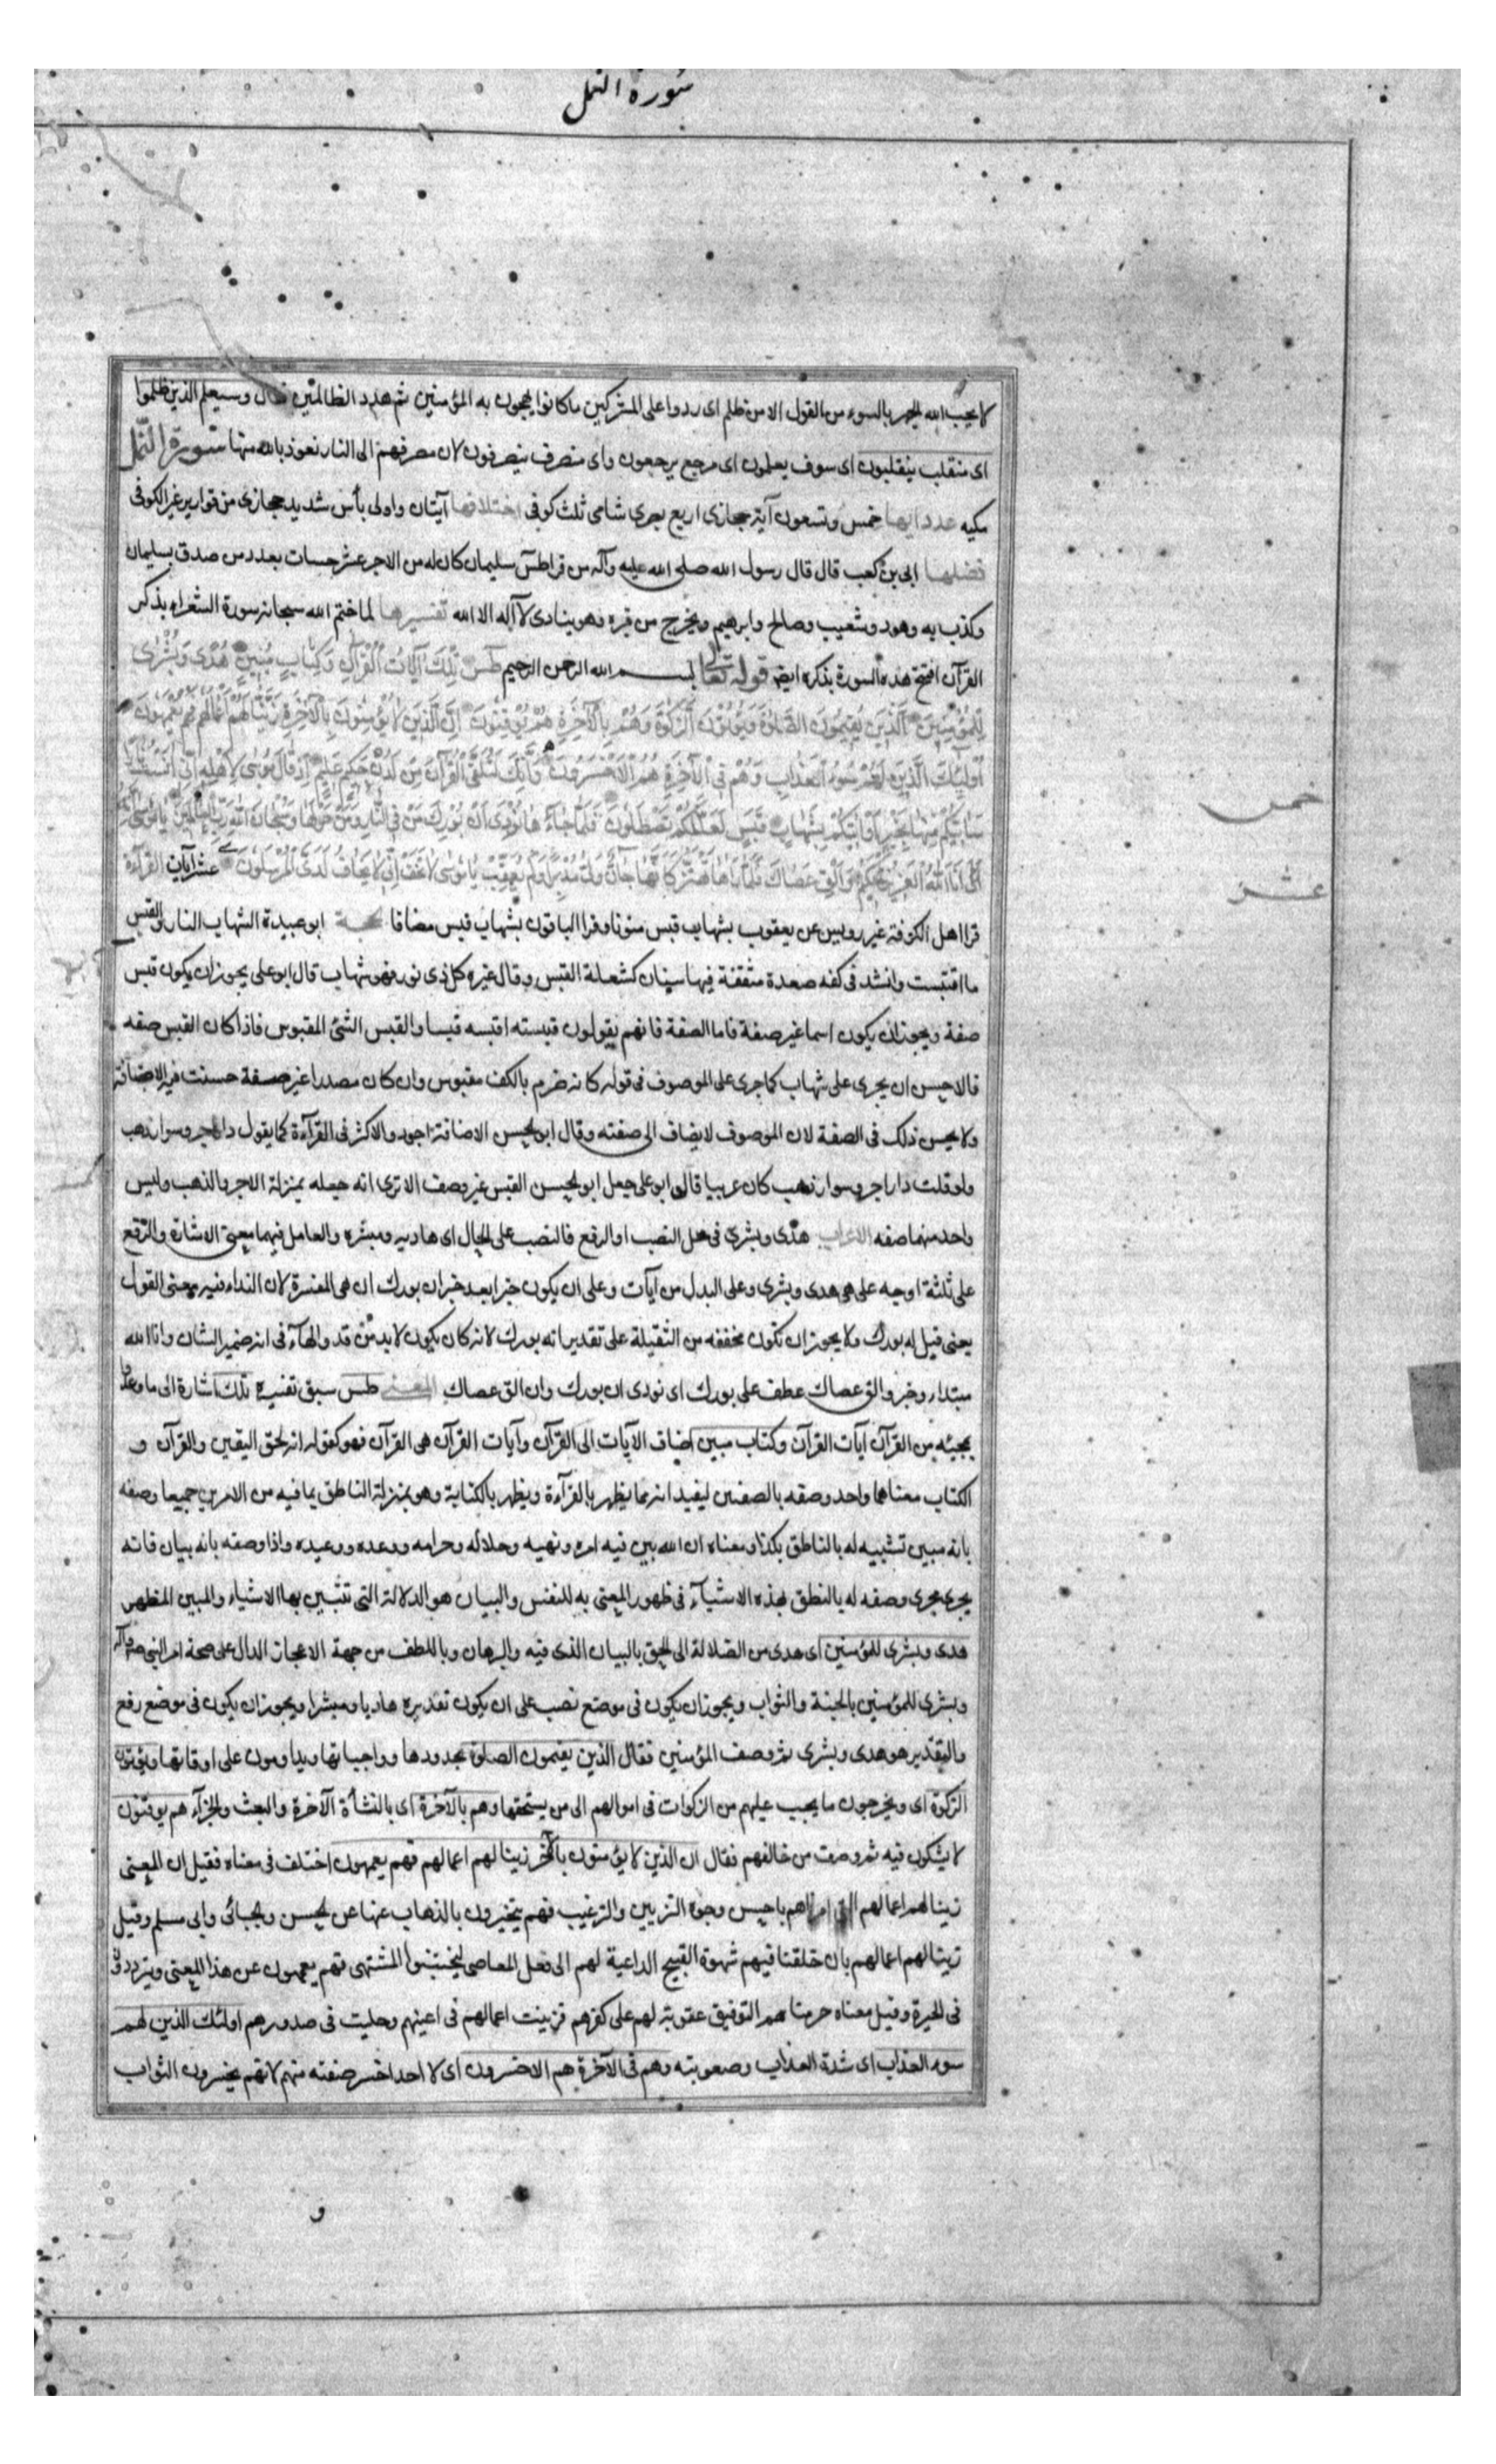 سورة النمل
لا يحب الله الجهر بالسوء من القول الا من ظلم اى ردوا على المشركين ما كانوا يهجون به المؤمنين ثم هدد الظالمين فقال وسيعلم الذين ظلموا
اى منقلب ينقلبون اى سوف يعلمون اى مرجع يرجعون واى منصرف ينصرفون لان مصرفهم الى النار نعوذ بالله منها سورة النمل
مكيه عدد ايها خمس وتسعون آية حجازى اربع بصرى شامى ثلث كوفى اختلافها آيتان واولى بأس شديد حجازى من قوارير غير الكوفى
فضلها ابى بن كعب قال قال رسول الله صلى الله عليه وآله من قرا طس سليمان كان له من الاجر عشر حسنات بعدد من صدق بسليمان
وكذب به وهود وشعيب وصالح وابرهيم ويخرج من قبره وهو ينادى لا آله الا الله تفسيرها لما ختم الله سبحانه سورة الشعراء بذكر
القرآن افتتح هذه السورة بذكره ايضا قوله تعالى بسم الله الرحمن الرحيم طس تلك آيات القرآن وكتاب مبين هدى وبشرى
للمؤمنين الذين يقيمون الصلوة ويؤتون الزكوة وهم بالآخرة هم يوقنون ان الذين لا يؤمنون بالآخرة زينا لهم اعمالهم فهم يعمهون
اولئك الذين لهم سوء العذاب وهم فى الآخرة هم الاخسرون وانك لتلقى القرآن من لدن حكيم عليم اذ قال موسى لاهله انى آنست نارا
سآتيكم منها بخبر او آتيكم بشهاب قبس لعلكم تصطلون فلما جاءها نودى ان بورك من فى النار ومن حولها وسبحان الله رب العالمين يا موسى
انه انا الله العزيز الحكيم والق عصاك فلما رآها تهتز كانها جان ولى مدبرا ولم يعقب يا موسى لا تخف انى لا يخاف لدى المرسلون عشر آيات القرآءة
خمس
عشر
قرا اهل الكوفة غير رويس عن يعقوب بشهاب قبس منونا وقرا الباقون بشهاب قبس مضافا الحجة ابو عبيدة الشهاب النار والقبس
ما اقتبست وانشد فى كفه صعدة مثقفة فيها سنان كشعلة القبس وقال غيره كل ذى نور فهو شهاب قال ابو على يجوز ان يكون قبس
صفة ويجوز ان يكون اسما غير صفة فاما الصفة فانهم يقولون قبسته اقبسه قبسا والقبس الشئ المقبوس فاذا كان القبس صفه
فالاحسن ان يجرى على شهاب كما جرى على الموصوف فى قوله كانه ضرم بالكف مقبوس وان كان مصدرا غير صفة حسنت فيه الاضافة
ولا يحسن ذلك فى الصفة لان الموصوف لا يضاف الى صفته وقال ابو الحسن الاضافة اجود والاكثر فى القرآءة كما يقول دار آجر وسوار ذهب
ولو قلت دار اجر وسوار ذهب كان عربيا قال ابو على جعل ابو الحسن القبس غير وصف الا ترى انه جعله بمنزلة الاجر والذهب وليس
واحد منهما صفه الاعراب هدى وبشرى فى محل النصب او الرفع فالنصب على الحال اى هادية ومبشره والعامل فيهما معنى الاشارة والرفع
على ثلثة اوجه على هى هدى وبشرى وعلى البدل من آيات وعلى ان يكون خبرا بعد خبر ان بورك ان هى المفسرة لان النداء فيه معنى القول
يعنى قيل له بورك ولا يجوز ان تكون مخففه من الثقيلة على تقدير انه بورك لانه كان يكون لا بد من قد والهاء فى انه ضمير الشان وانا الله
مبتداء وخبر والق عصاك عطف على بورك اى نودى ان بورك وان الق عصاك المعنى طس سبق تفسيره تلك اشارة الى ما وعدوا
بمجيئه من القرآن آيات القرآن وكتاب مبين اضاف الآيات الى القرآن وآيات القرآن هى القرآن فهو كقوله انه لحق اليقين والقرآن و
الكتاب معناهما واحد وصفه بالصفتين ليفيد انه مما يظهر بالقرآءة ويظهر بالكتابة وهو بمنزلة الناطق بما فيه من الامرين جميعا وصفه
بانه مبين تشبيه له بالناطق بكذا ومعناه ان الله بين فيه امره ونهيه وحلاله وحرامه ووعده ووعيده واذا وصفه بانه بيان فانه
يجرى مجرى وصفه له بالنطق بهذه الاشيآء فى ظهور المعنى به للنفس والبيان هو الدلالة التى تتبين بها الاشياء والمبين المظهر
هدى وبشرى للمؤمنين اى هدى من الضلالة الى الحق بالبيان الذى فيه والبرهان وباللطف من جهة الاعجاز الدال على صحة امر النبى
وبشرى للمؤمنين بالجنة والثواب ويجوز ان يكون فى موضع نصب على ان يكون تقديره هاديا ومبشرا ويجوز ان يكون فى موضع رفع
والتقدير هو هدى وبشرى ثم وصف المؤمنين فقال الذين يقيمون الصلوة بحدودها وواجباتها ويداومون على اوقاتها ويؤتون
الزكوة اى ويخرجون ما يجب عليهم من الزكوات فى اموالهم الى من يستحقها وهم بالآخرة اى بالنشأة الآخرة والبعث والجزآء هم يوقنون
لا يشكون فيه ثم وصف من خالفهم فقال ان الذين لا يؤمنون بالآخرة زينا لهم اعمالهم فهم يعمهون اختلف فى معناه فقيل ان المعنى
زينا لهم اعمالهم التى امرناهم باحسن وجوه التزيين والترغيب فهم يتحيرون بالذهاب عنها عن الحسن والجبائى وابى مسلم وقيل
زينا لهم اعمالهم بان خلقنا فيهم شهوة القبيح الداعية لهم الى فعل المعاصى ليجتنبوا المشتهى فهم يعمهون عن هذا المعنى ويترددون
فى الحيرة وقيل معناه حرمناهم التوفيق عقوبة لهم على كفرهم فزينت اعمالهم فى اعينهم وحليت فى صدورهم اولئك الذين لهم
سوء العذاب اى شدة العذاب وصعوبته وهم فى الآخرة هم الاخسرون اى لا احد اخسر صفقه منهم لانهم يخسرون الثواب
و